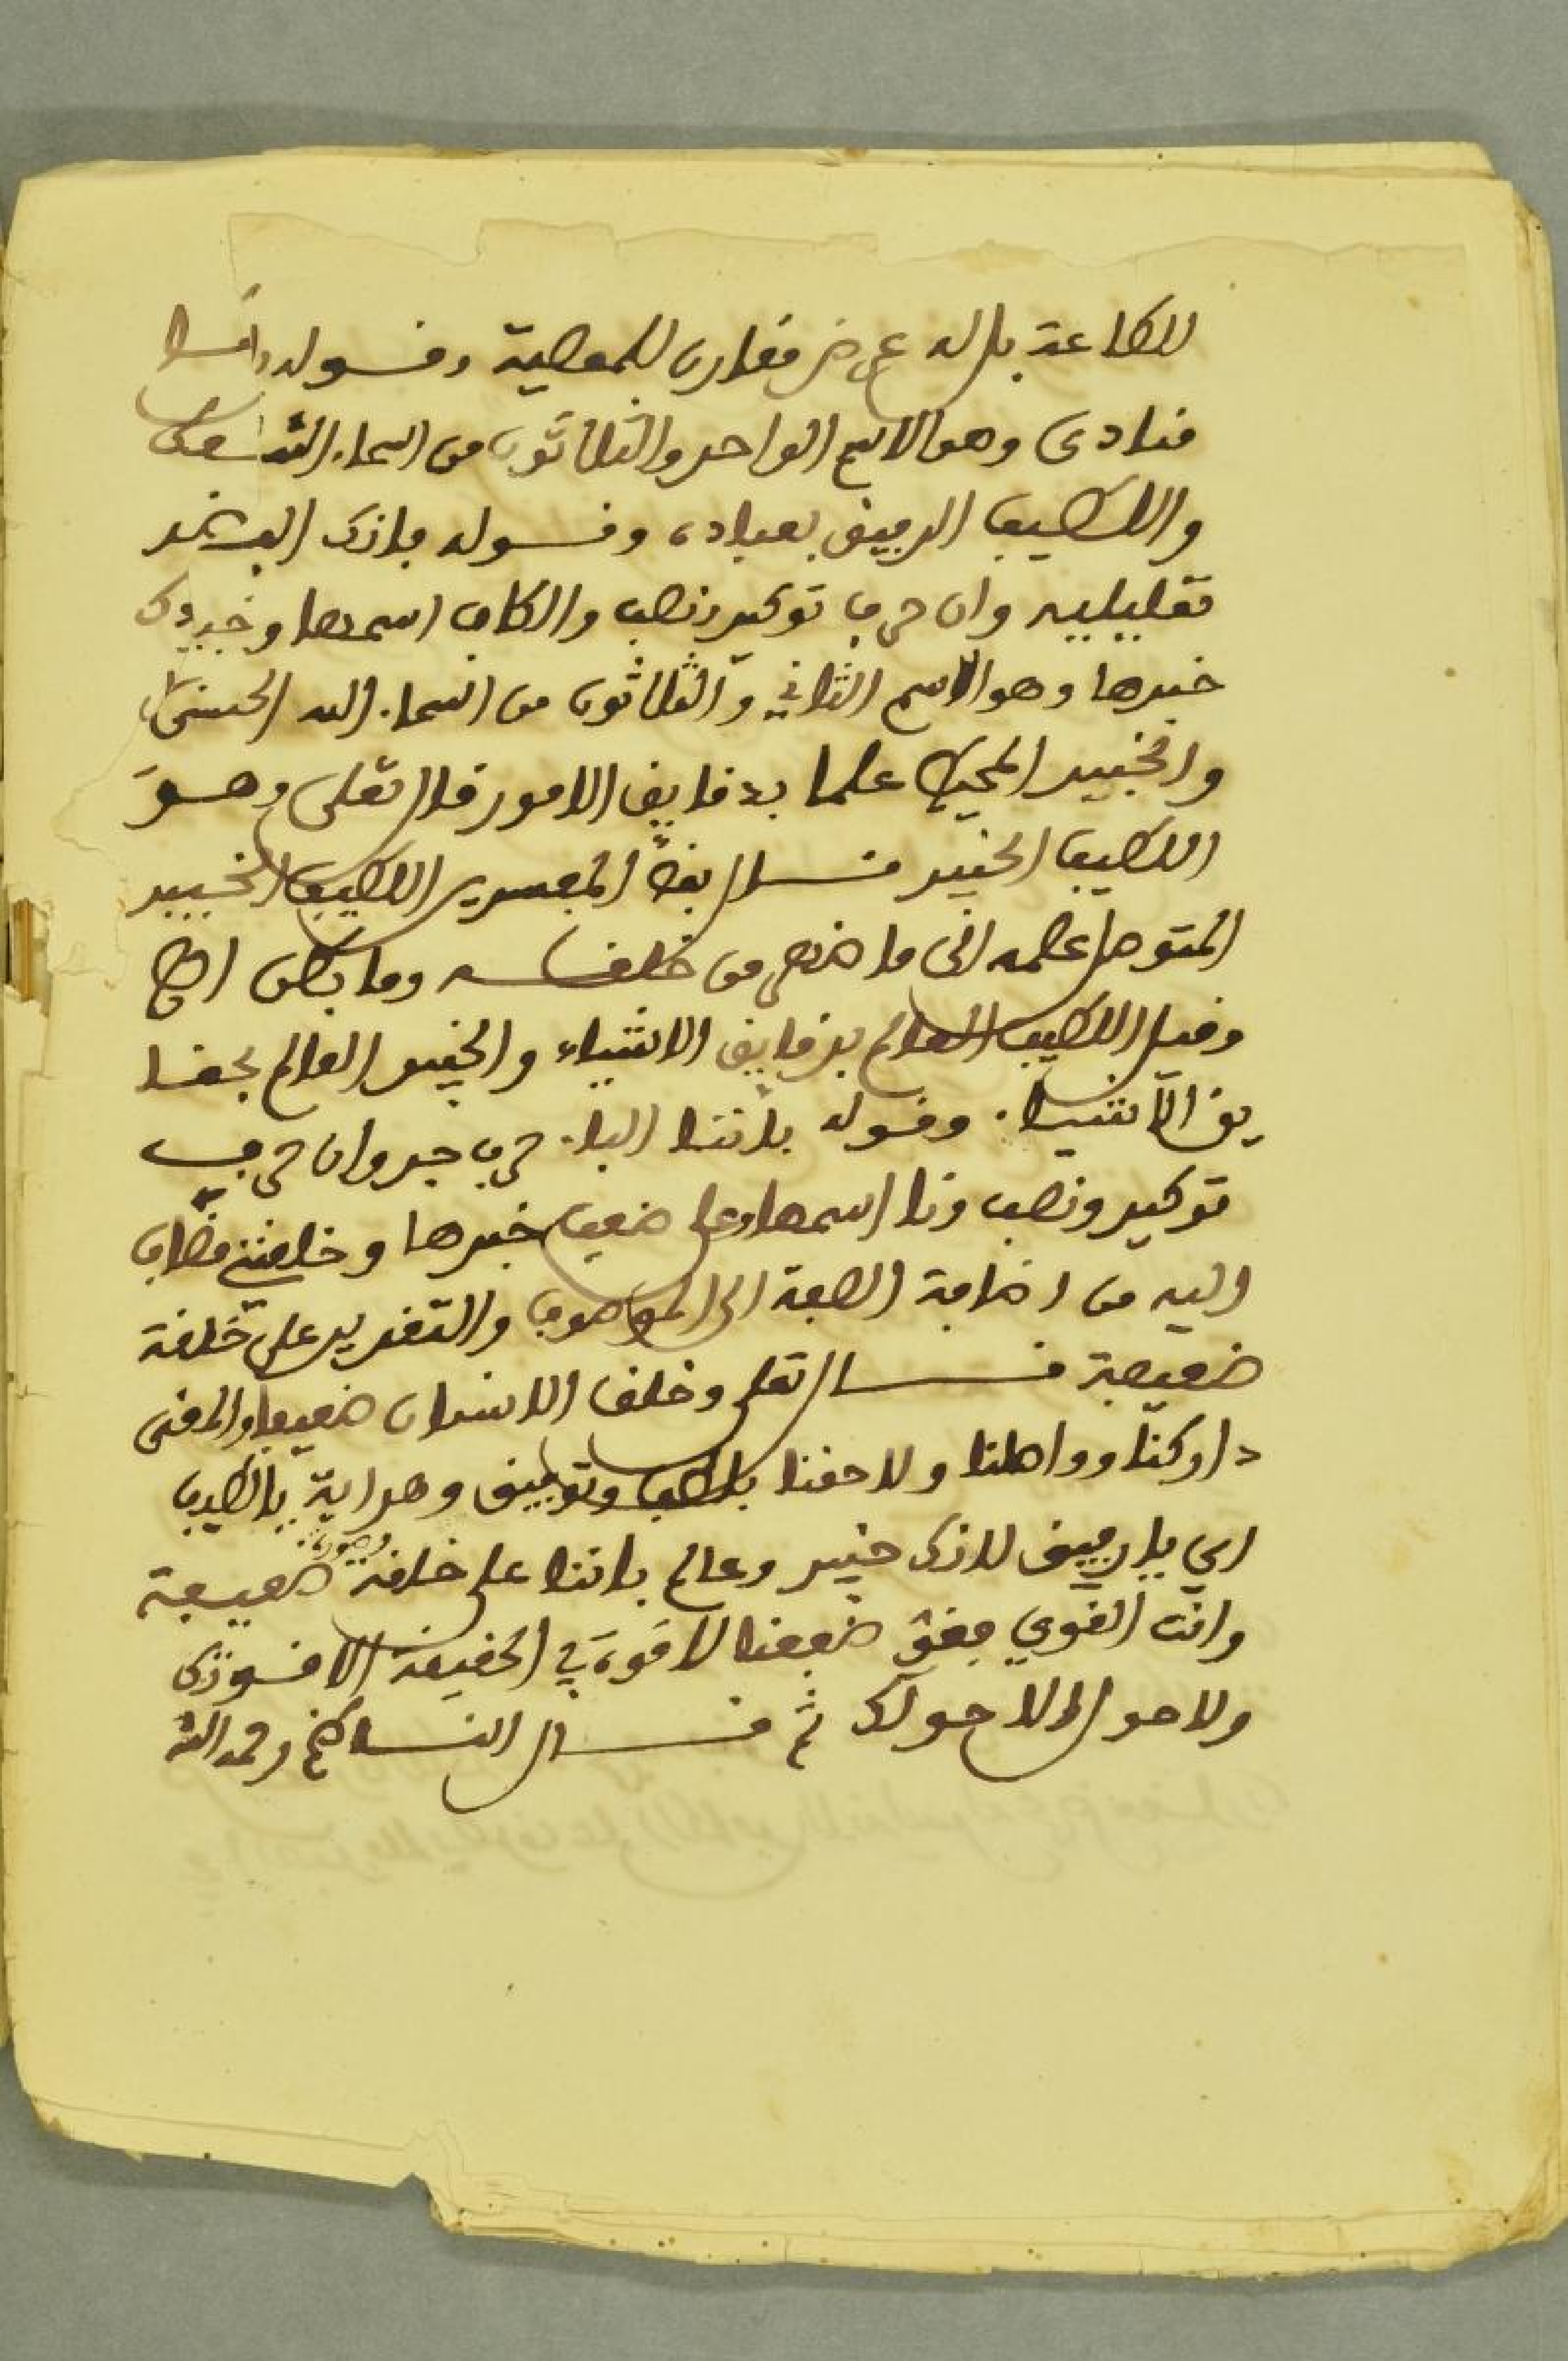 للطاعة بل له عرض مقارن للمعصية وقوله يا
منادى وهو الاسم الواحد والثلاثون من اسماء الله تعلى
واللطيف الرفيق بعباده وقوله بانك الباء
تعليلية وان حرف توكيد ونصب والكاف اسمها وخبير
خبرها وهو الاسم الثاني والثلاثون من اسماء الله الحسنى
والخبير المحيط علما بدقايق الامور قال تعلى وهو
اللطيف الخبير قال بعض المفسرين اللطيف الخبير
المتوصل علمه الى ما ظهر من خلقه وما بطن اهـ
وقيل اللطيف العالم بدقايق الاشياء والخبير العالم بحقا
يق الاشياء وقوله باننا الباء حرف جر وان حرف
توكيد ونصب ونا اسمها وعلى ضعف خبرها وخلقتي مضاف
اليه من اضافة الصفة الى الموصوف والتقدير على خلقة
ضعيفة قال تعلى وخلق الانسان ضعيفا والمعنى
داركنا وواصلنا ولاحقنا بلطف وتوفيق وهداية يا لطيف
اي يا رفيق لانك خبير وعالم باننا على خلقة وصورة ضعيفة
وانت القوي فقو ضعفنا لا قوة في الحقيقة الا قوتك
ولا حول الا حولك ثم قال الناظم رحمه الله